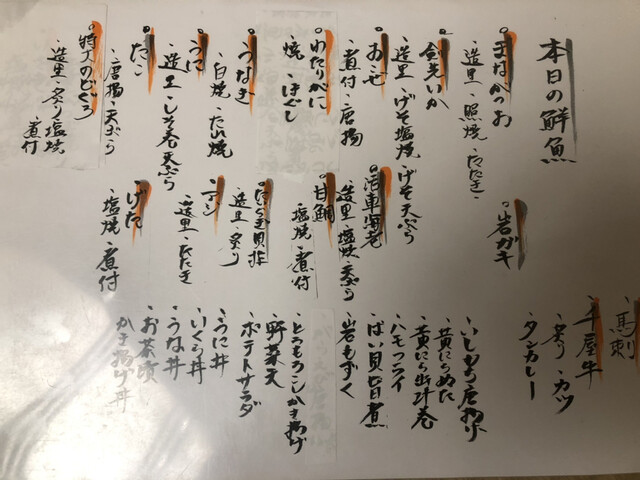 本日の鮮魚
まながつお
・造里・照焼・たたき・
剣先いか
・造里・げそ塩焼・げそ天ぷら
おこぜ
・煮付・唐揚
わたりがに
・焼・ほぐし
うなぎ
・白焼・たれ焼
うに
・造里・しそ巻天ぷら
たこ
・唐揚・天ぷら
特大のどぐろ
・造里・炙り・塩焼・煮付
岩ガキ
活車海老
・造里・塩焼・天ぷら
甘鯛
・塩焼・煮付
たいらぎ貝
・造里・炙り
アジ
・造里・たたき
げた
・塩焼・煮付
・馬刺
・千屋牛
・炙り・カツ
・タンカレー
・黄にらぬた
・黄にら出汁巻
・ハモフライ
・ばい貝旨煮
・岩もずく
・とうもろこしかき揚げ
・野菜天
・ポテトサラダ
・うに丼
・いくら丼
・うな丼
・お茶漬
・かき揚げ丼